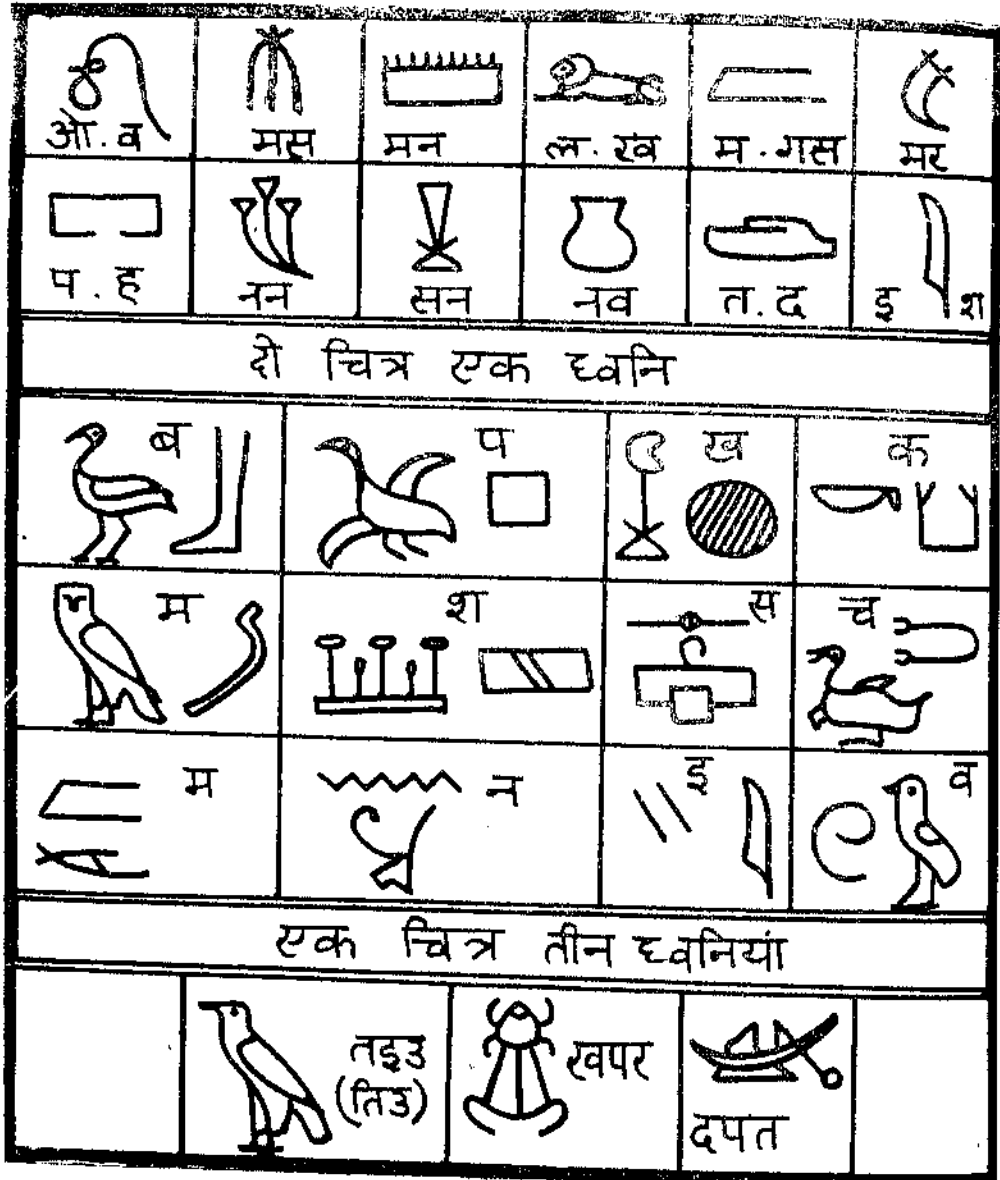 ओ. व मस मन ल. ख म. गस मर
प. ह नन सन नव त. द इ श
दो चित्र एक ध्वनि
ब प ख क
म श स च
म न इ व
एक चित्र तीन ध्वनियां
तइउ
(तिउ)
खपर
दपत